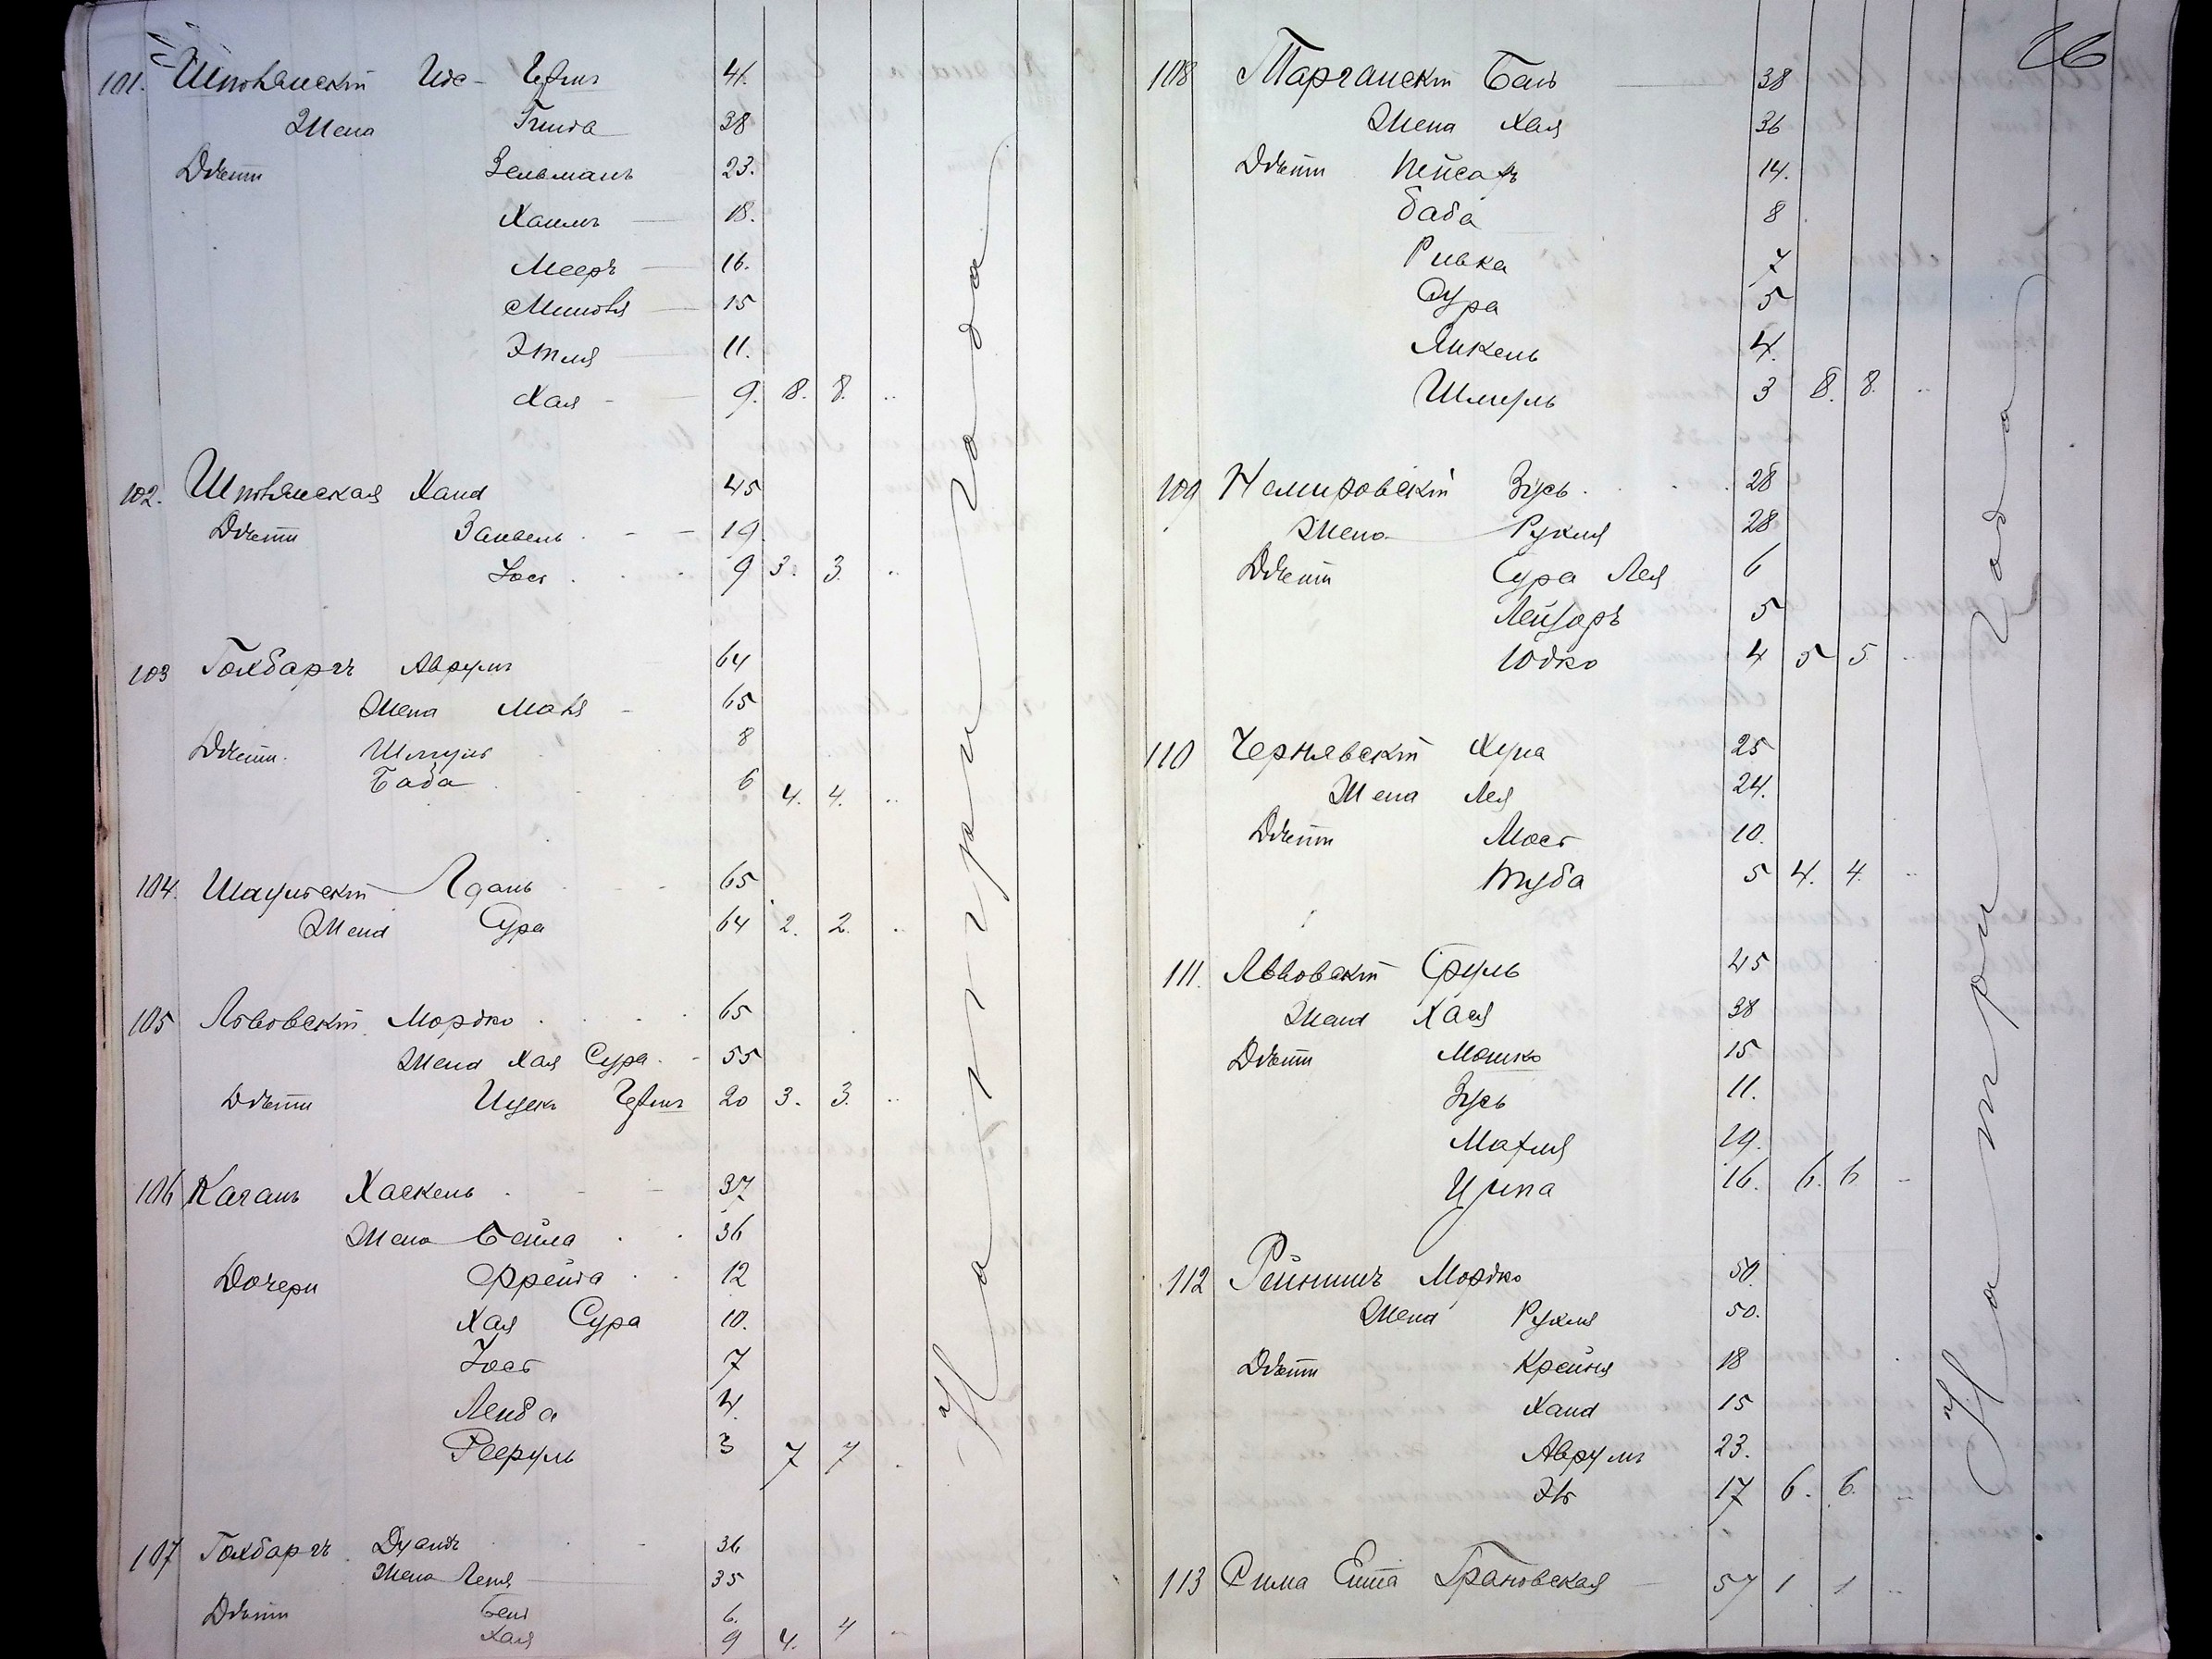 101. Шполянскій Иос- 41.
Жена 38
Дѣти Зельманъ 23.
Хаимъ 18.
Мееръ 16.
15
Этля 11.
Хая 9. 8. 8. ..
102. Шполянская Хана 45
Дѣти Занвель 19.
Іось 9 3. 3. ..
103 Голдбаргъ Аврумъ 64
Жена 65
Дѣти Шмуль 8
Баба 6 4. 4. ..
104. 65
Жена Сура 64 2. 2. ..
105 Львовскій Мордко 65
Жена Хая Сура 55
Дѣти Ицекъ 20 3. 3. ..
106 Каганъ Хаскель 37
Жена Бейла 36
Дочери Фрейда 12
Хая Сура 10.
Іось 7
Лейба 4.
3 7 7 .
107 Голдбаргъ 36
Жена 35
Дѣти 6.
Хая 9 4. 4 ..
На три года
26
108 Тарганскій 38
Жена Хая 36
Дѣти Пейсахъ 14.
Баба 8
Ривка 7
Сура 5
Янкель 4.
Шмуль 3 8. 8. ..
109 Немировскій Зусь 28
Жена Рухля 28
Дѣти Сура Лея 6
Лейзоръ 5
Юдко 4 5 5 ..
110 Чернявскій 25
Жена Лея 24.
Дѣти Мось 10.
Туба 5 4. 4. ..
111. Львовскій Сруль 45
Жена Хася 38
Дѣти Мошко 15
Зусь 11.
Махля 19.
Ципа 16. 6. 6 ..
112 Мордко 50.
Жена Рухля 50.
Дѣти Крейня 18
Хана 15
Аврумъ 23.
17 6. 6. ..
113 Сима Грановская 57 1 1 ..
На три года